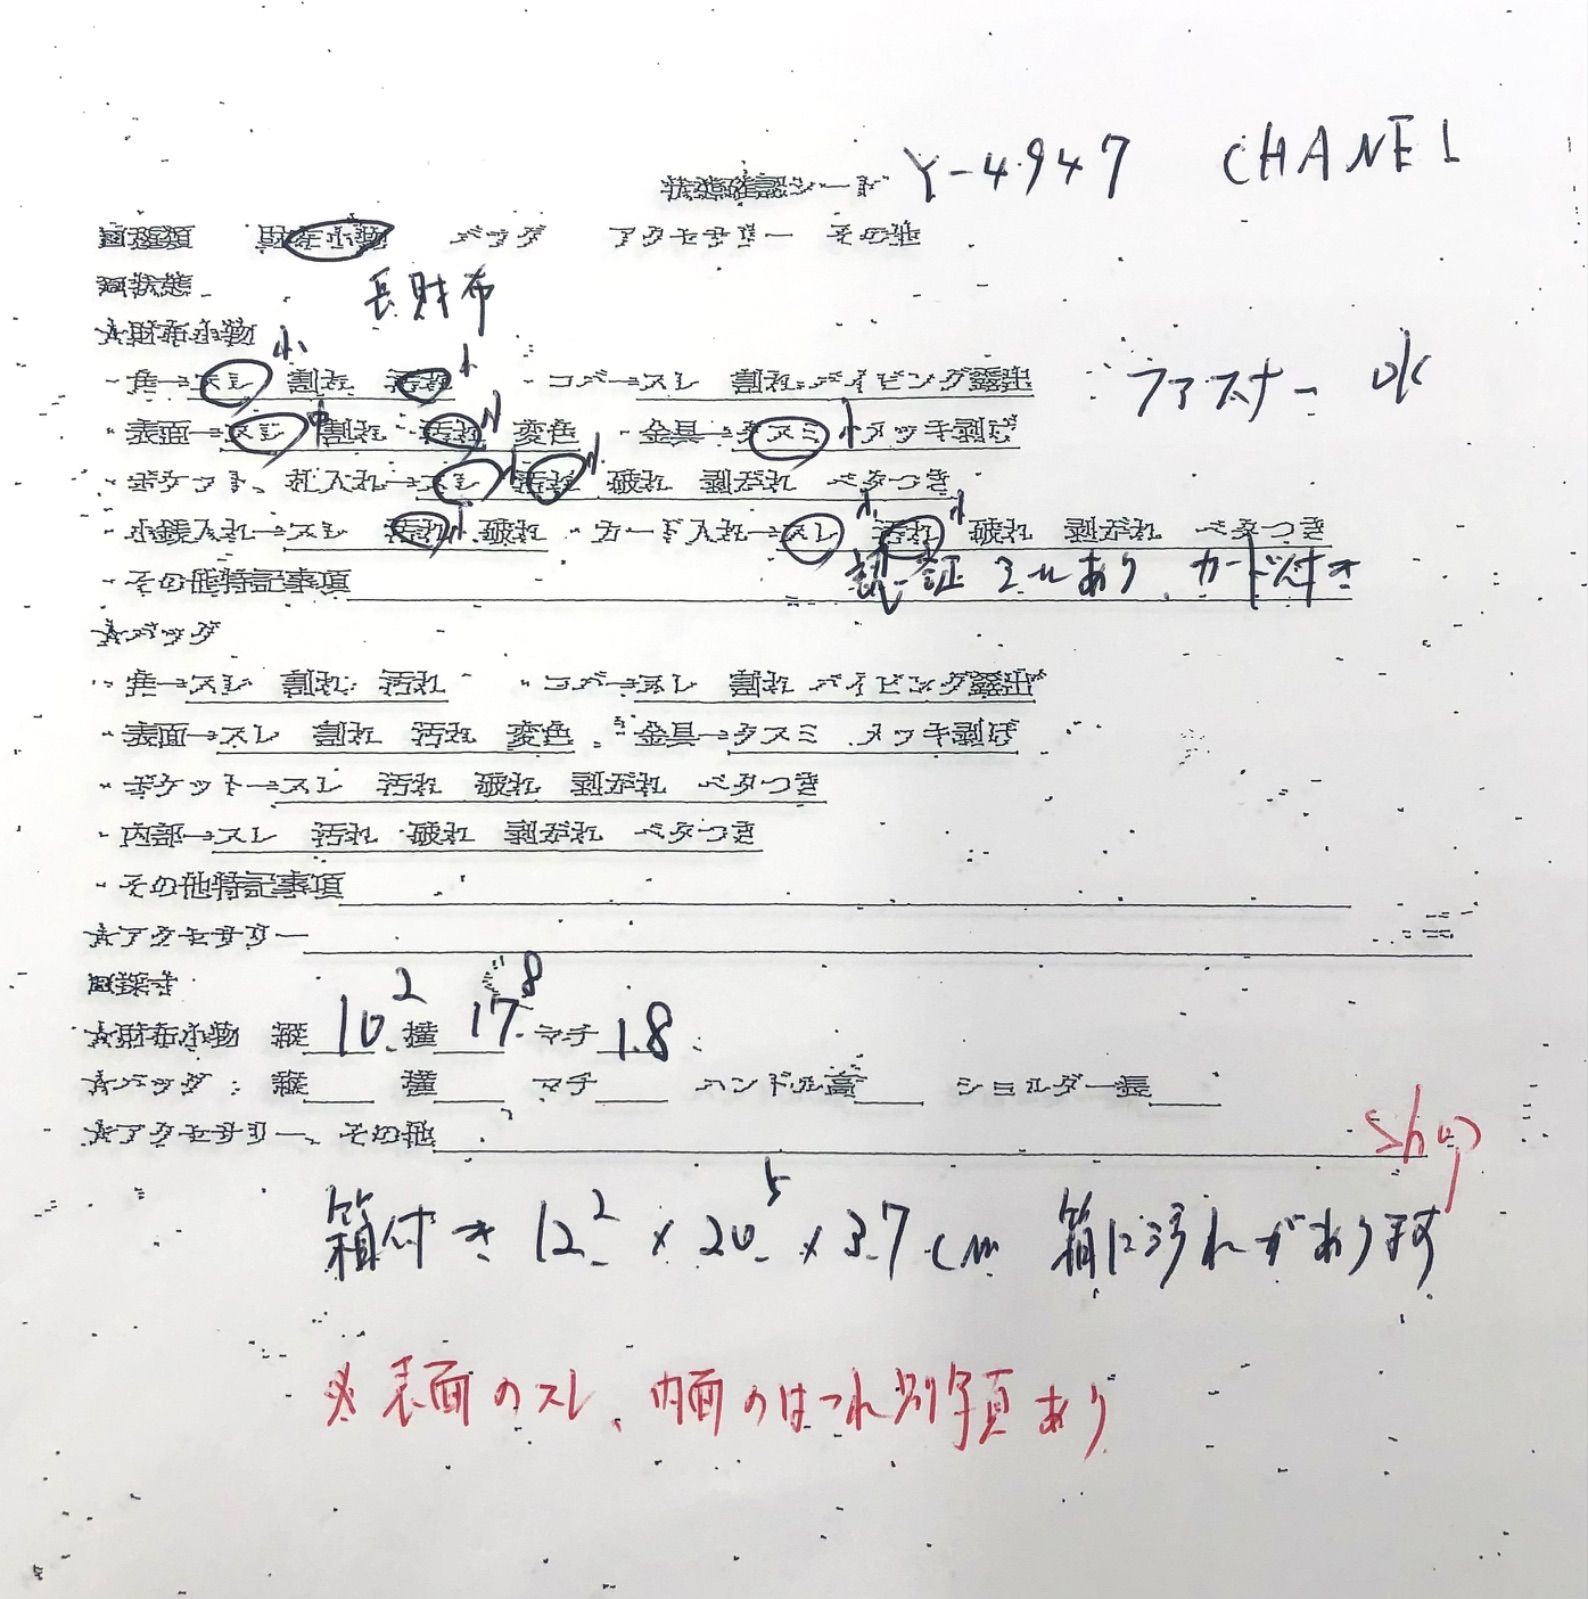 状態確認シート Y-4947 CHANEL
■種類 財布小物 バッグ アクセサリー その他
■状態 長財布
★財布小物
・角→スレ 小 割れ 汚れ 小 ・コバ→スレ 割れ パイピング露出 ファスナー OK
・表面→スレ 中 割れ 汚れ 小 変色 ・金具→クスミ 小 メッキ剥げ
・ポケット、札入れ→スレ 小 汚れ 小 破れ 剥がれ ベタつき
・小銭入れ→スレ 汚れ 小 破れ ・カード入れ→スレ 小 汚れ 小 破れ 剥がれ ベタつき
・その他特記事項 認証シールあり カード付き
★バッグ
・角→スレ 割れ 汚れ ・コバ→スレ 割れ パイピング露出
・表面→スレ 割れ 汚れ 変色 ・金具→クスミ メッキ剥げ
・ポケット→スレ 汚れ 破れ 剥がれ ベタつき
・内部→スレ 汚れ 破れ 剥がれ ベタつき
・その他特記事項
★アクセサリー
■採寸
★財布小物 縦 10.2 横 17.8 マチ 1.8
★バッグ 縦 横 マチ ハンドル高 ショルダー長
★アクセサリー、その他
shop
箱付き 12.2 × 20.5 × 3.7cm 箱に汚れがあります
※表面のスレ、内面のほつれ別写真あり